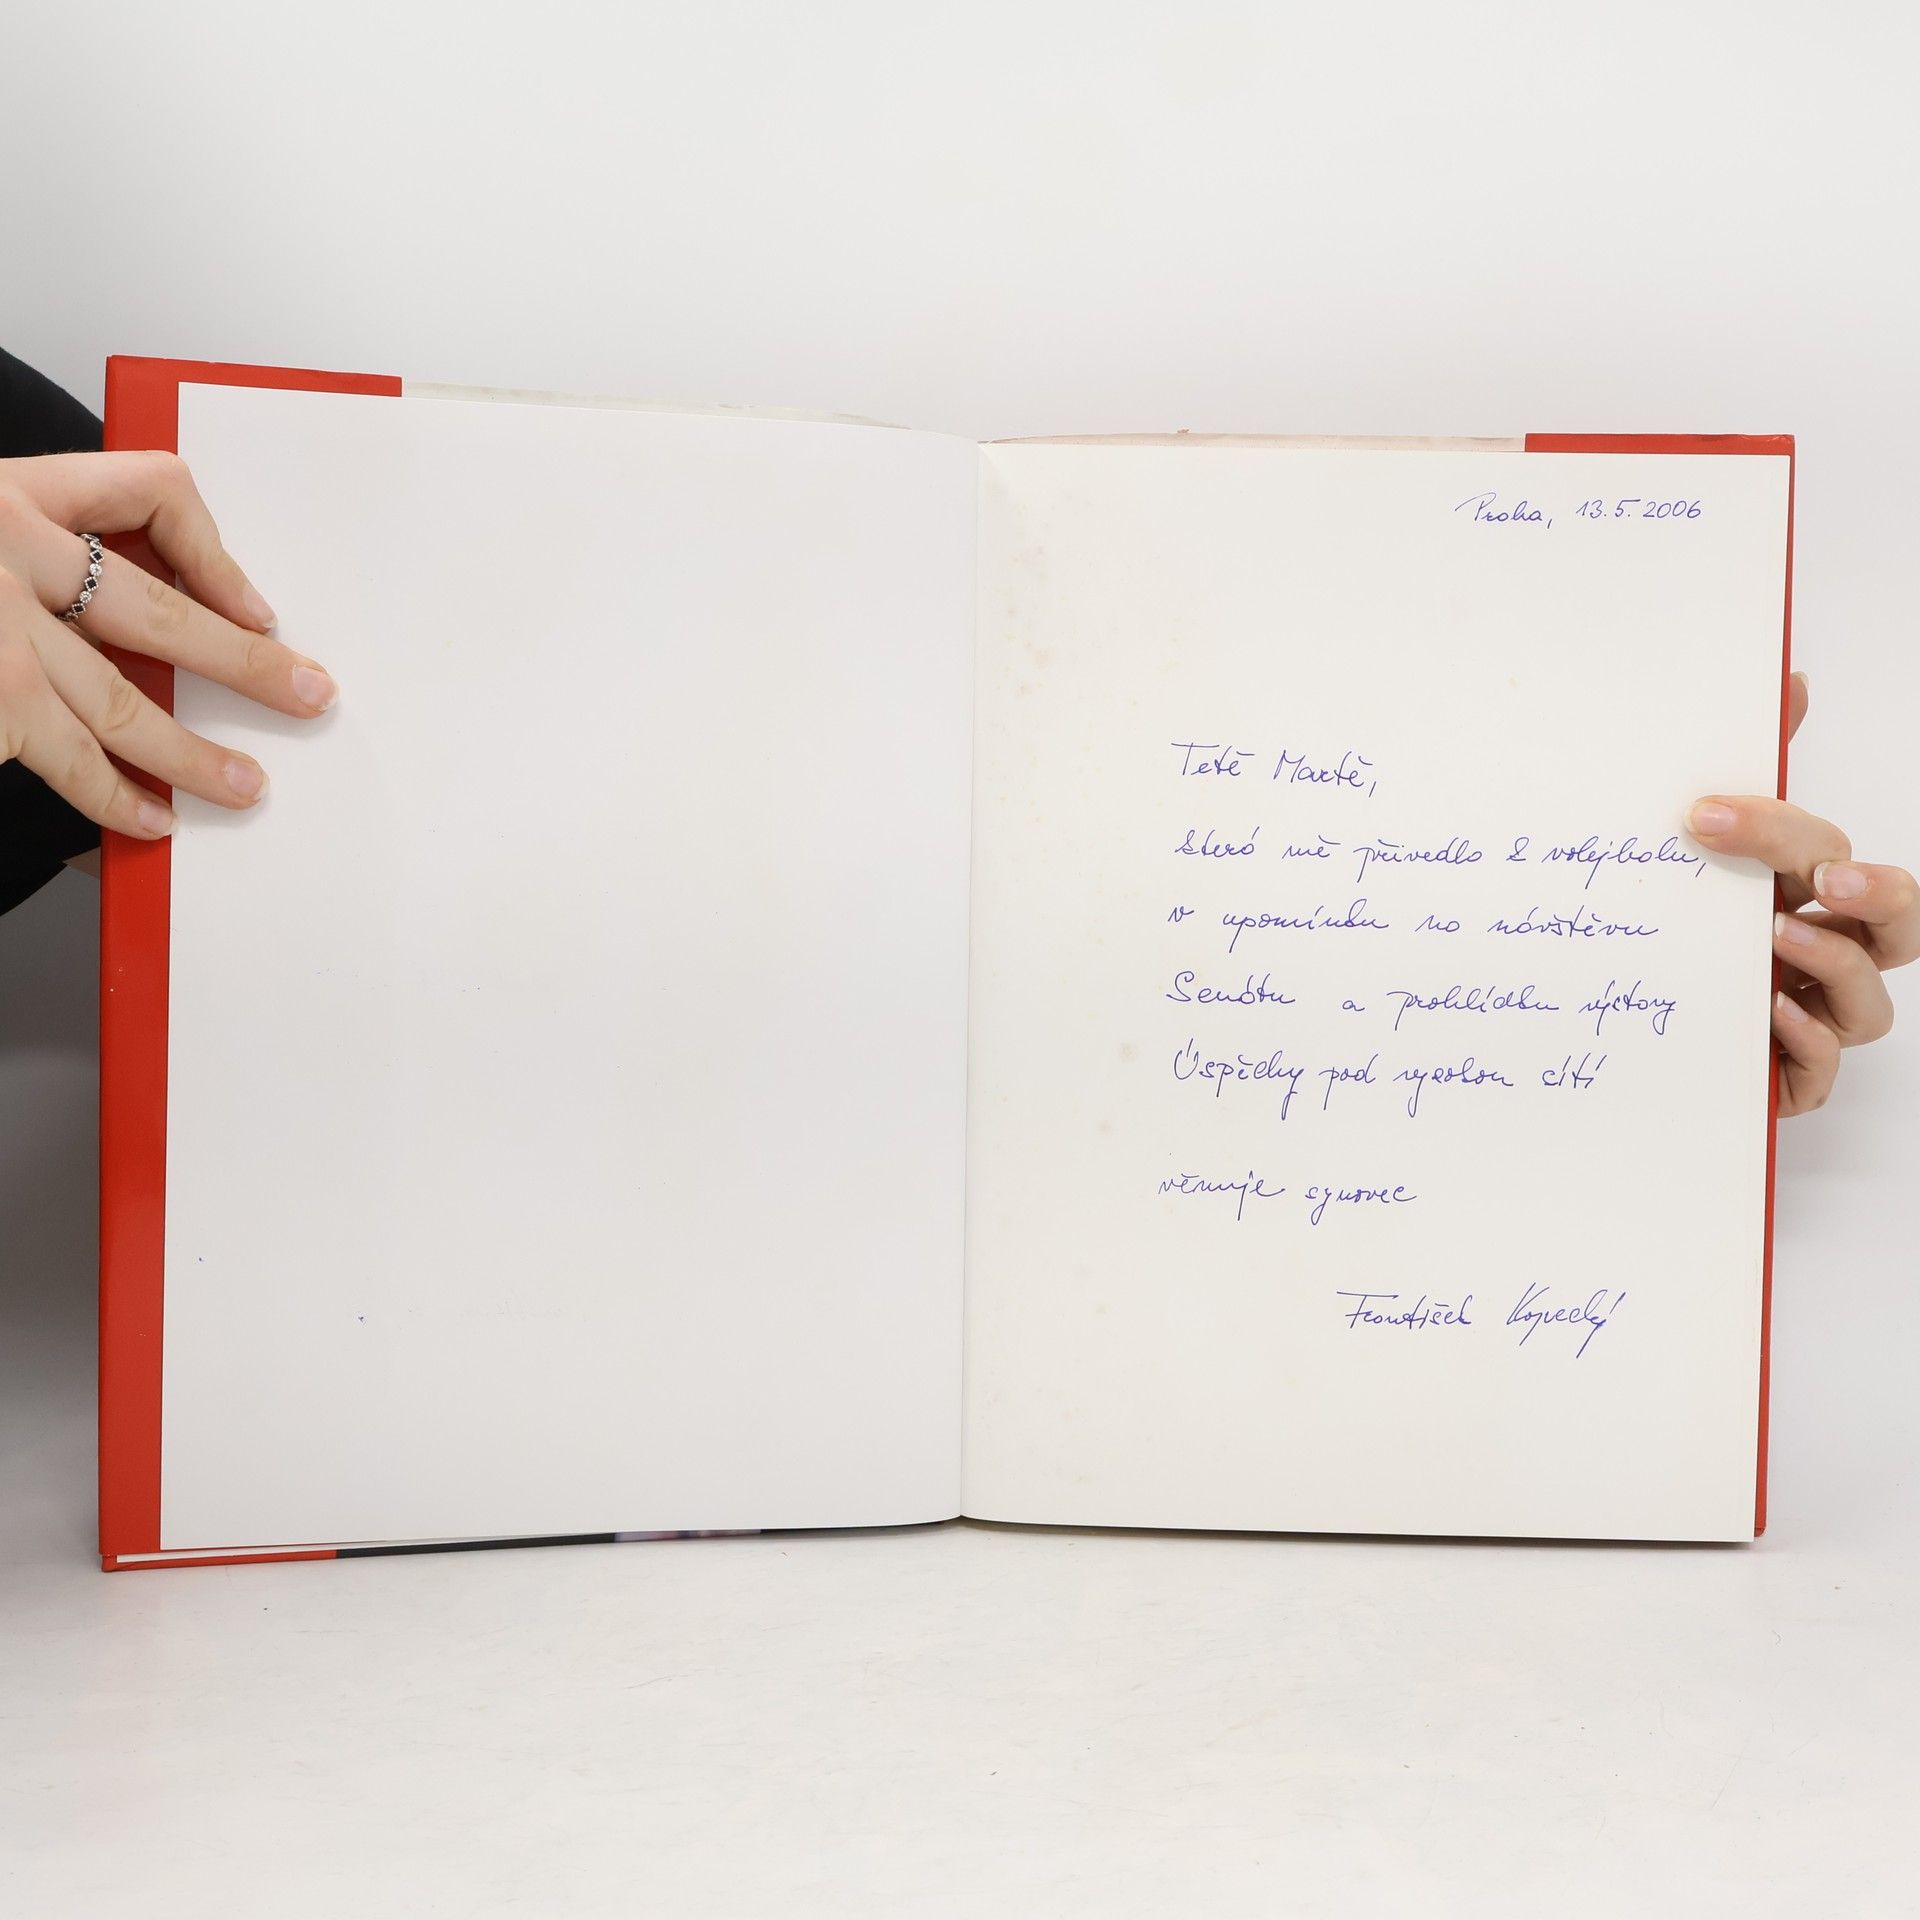 Praha, 13.5.2006
Tetě Martě,
která mě přivedla k volejbalu,
v upomínku na návštěvu
Senátu a prohlídku výstavy
Úspěchy pod vysokou sítí
věnuje synovec
František Kopecký